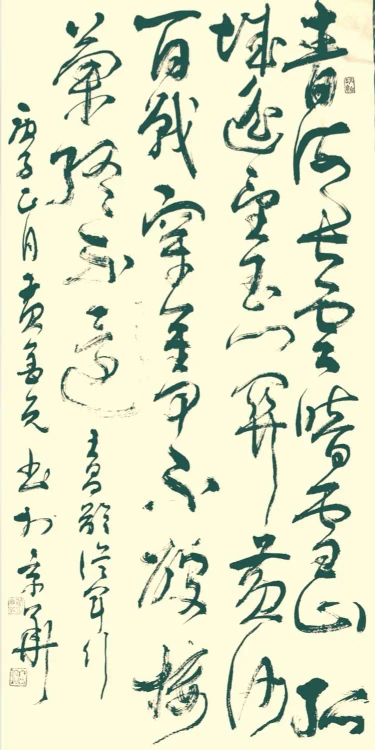 青海长雲暗雪山孤
城遥望玉门關黄沙
百戰穿金甲不破楼
蘭終不還 王昌齡從軍行
庚子正月 书于京華